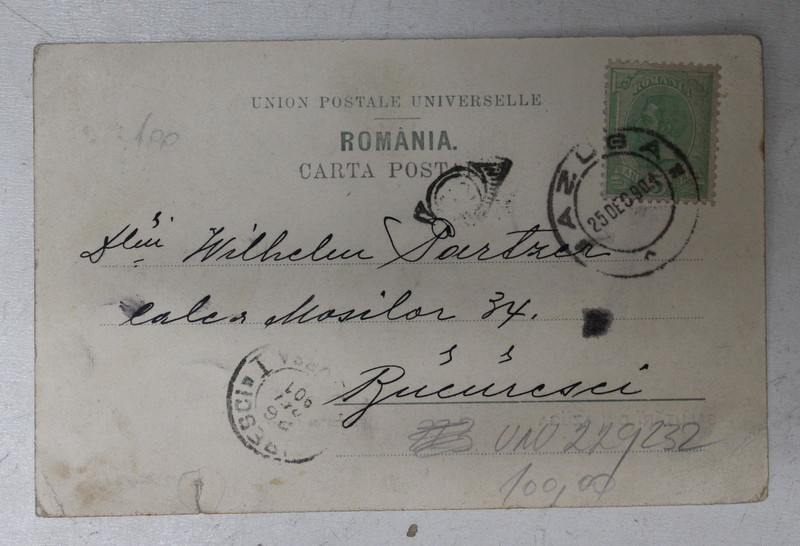 UNION POSTALE UNIVERSELLE
ROMÂNIA.
CARTA POSTA
ROMANIA
AZUGA
25 DEC 901
Dlui Wilhelm Partzer
calea Mosilor 34.
Bucuresci
RESCI I
26
901
VNV 229232
100,00
100